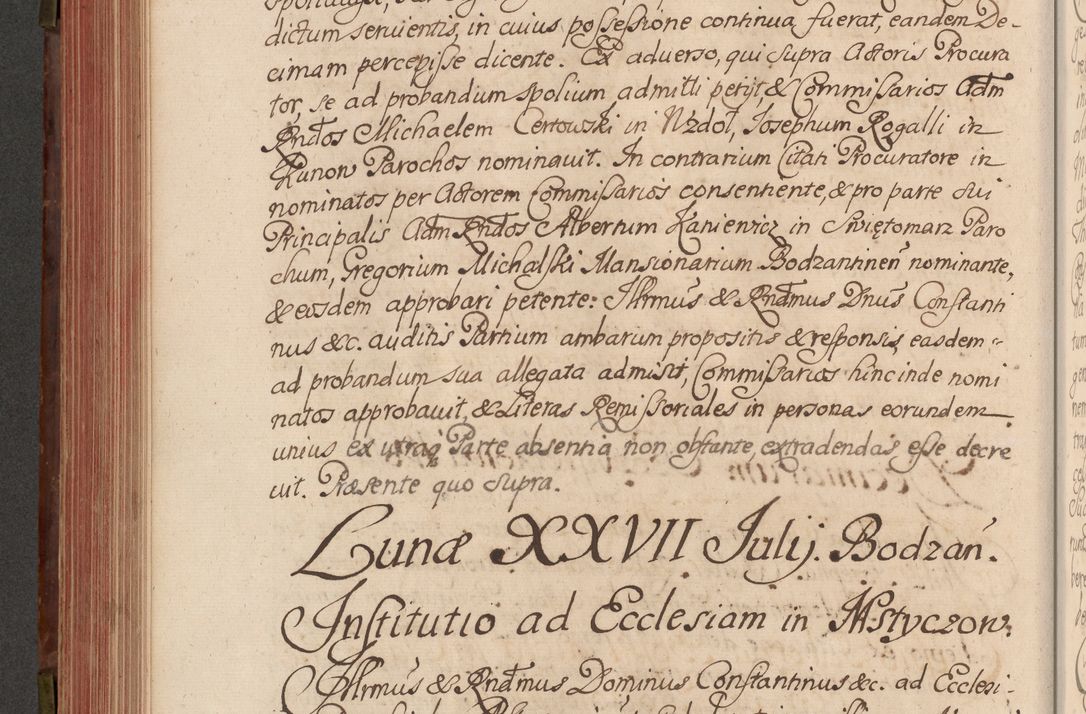 dictum seruientis, in cuius possessione continua fuerat, eandem De-
cimam percepisse dicente. Ex aduerso, qui supra Actoris Procura
tor, se ad probandum spolium admitti petijt, & Commissarios Adm
Rndos Michaelem Certowski in Wzdoł, Josephum Rogalli in
Kunow Parochos nominauit. In contrarium Citati Procuratore in
nominatos per Actorem Commissarios consentiente, & pro parte sui
Principalis Adm Rndos Albertum Kanievicz in Swiętomarz Paro
chum, Gregorium Michalski Mansionarium Bodzantinen nominante,
& eosdem approbari petente: Illrmus & Rndmus Dnus Constanti
nus &c. auditis Partium ambarum propositis & responsis, easdem
ad probandum sua allegata admisit, Commissarios hinc inde nomi
natos approbauit, & Literas Remissoriales in personas eorundem
unius ex utraq Parte absentia non obstante, extradendas esse decre
uit. Præsente quo supra.
Lunæ XXVII Julij. Bodzan.
Institutio ad Ecclesiam in Mstyczow.
Illrmus & Rndmus Dominus Constantinus &c. ad Ecclesi-